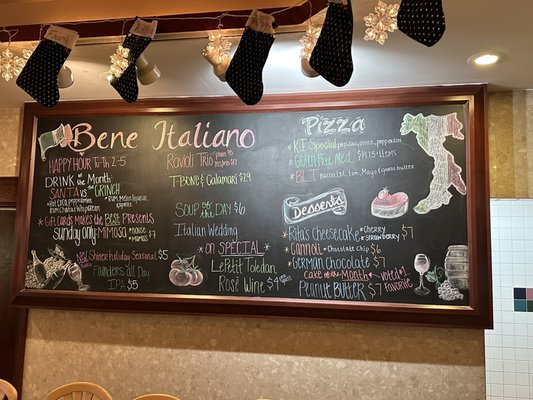 Frank
Bene Italiano
HAPPY HOUR Tu-Th 2-5
DRINK of the Month:
SANTA vs the GRINCH
GIFT CARDS MAKES the BEST PRESENTS
Sunday only MIMOSA
HOUSE $5
MIMOSAS $7
Shiner Holiday Seasonal $5
Founders All Day
IPA $5
Ravioli Trio
$19
T-BONE & Calamari $19
SOUP of the DAY $6
Italian Wedding
*on SPECIAL*
Le Petit Toledan
Rosé Wine $4
Pizza
KJ Special
Gluten Free Med. $14.25 +items
BLT bacon, let, tom, Mayo
Desserts
*Rita's Cheesecake Cherry Strawberry $7
Cannoli Chocolate Chip $6
*German Chocolate $7
Cake of the Month *voted #1 Favorite
Peanut Butter $7